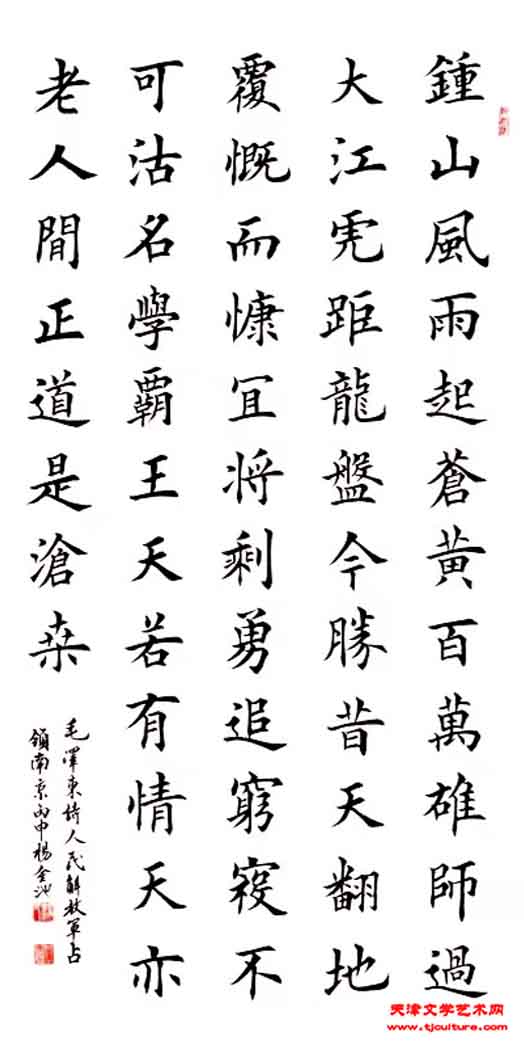 鍾山風雨起蒼黃百萬雄師過
大江虎距龍盤今勝昔天翻地
覆慨而慷冝将剩勇追窮寇不
可沽名學霸王天若有情天亦
老人間正道是滄桒
毛澤東詩人民解放軍占
領南京丙申楊金池
天津文学艺术网
www.tjculture.com